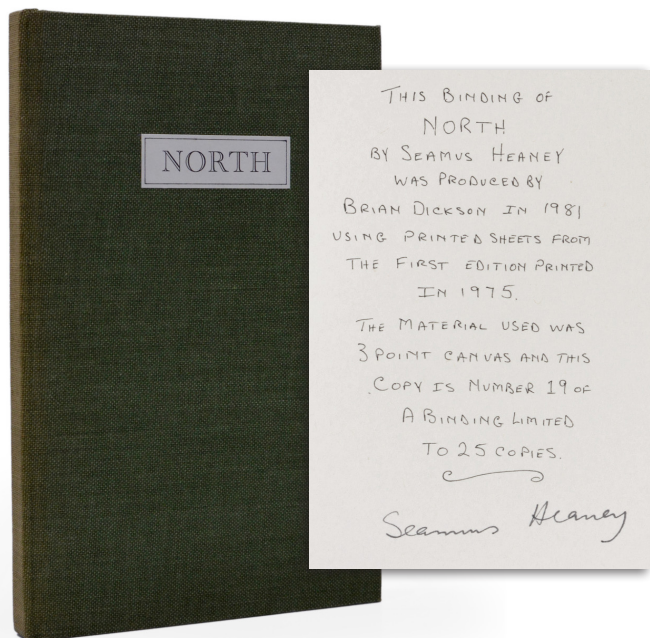 NORTH
THIS BINDING OF
NORTH
BY SEAMUS HEANEY
WAS PRODUCED BY
BRIAN DICKSON IN 1981
USING PRINTED SHEETS FROM
THE FIRST EDITION PRINTED
IN 1975.
THE MATERIAL USED WAS
3 POINT CANVAS AND THIS
COPY IS NUMBER 19 OF
A BINDING LIMITED
TO 25 COPIES.
Seamus Heaney